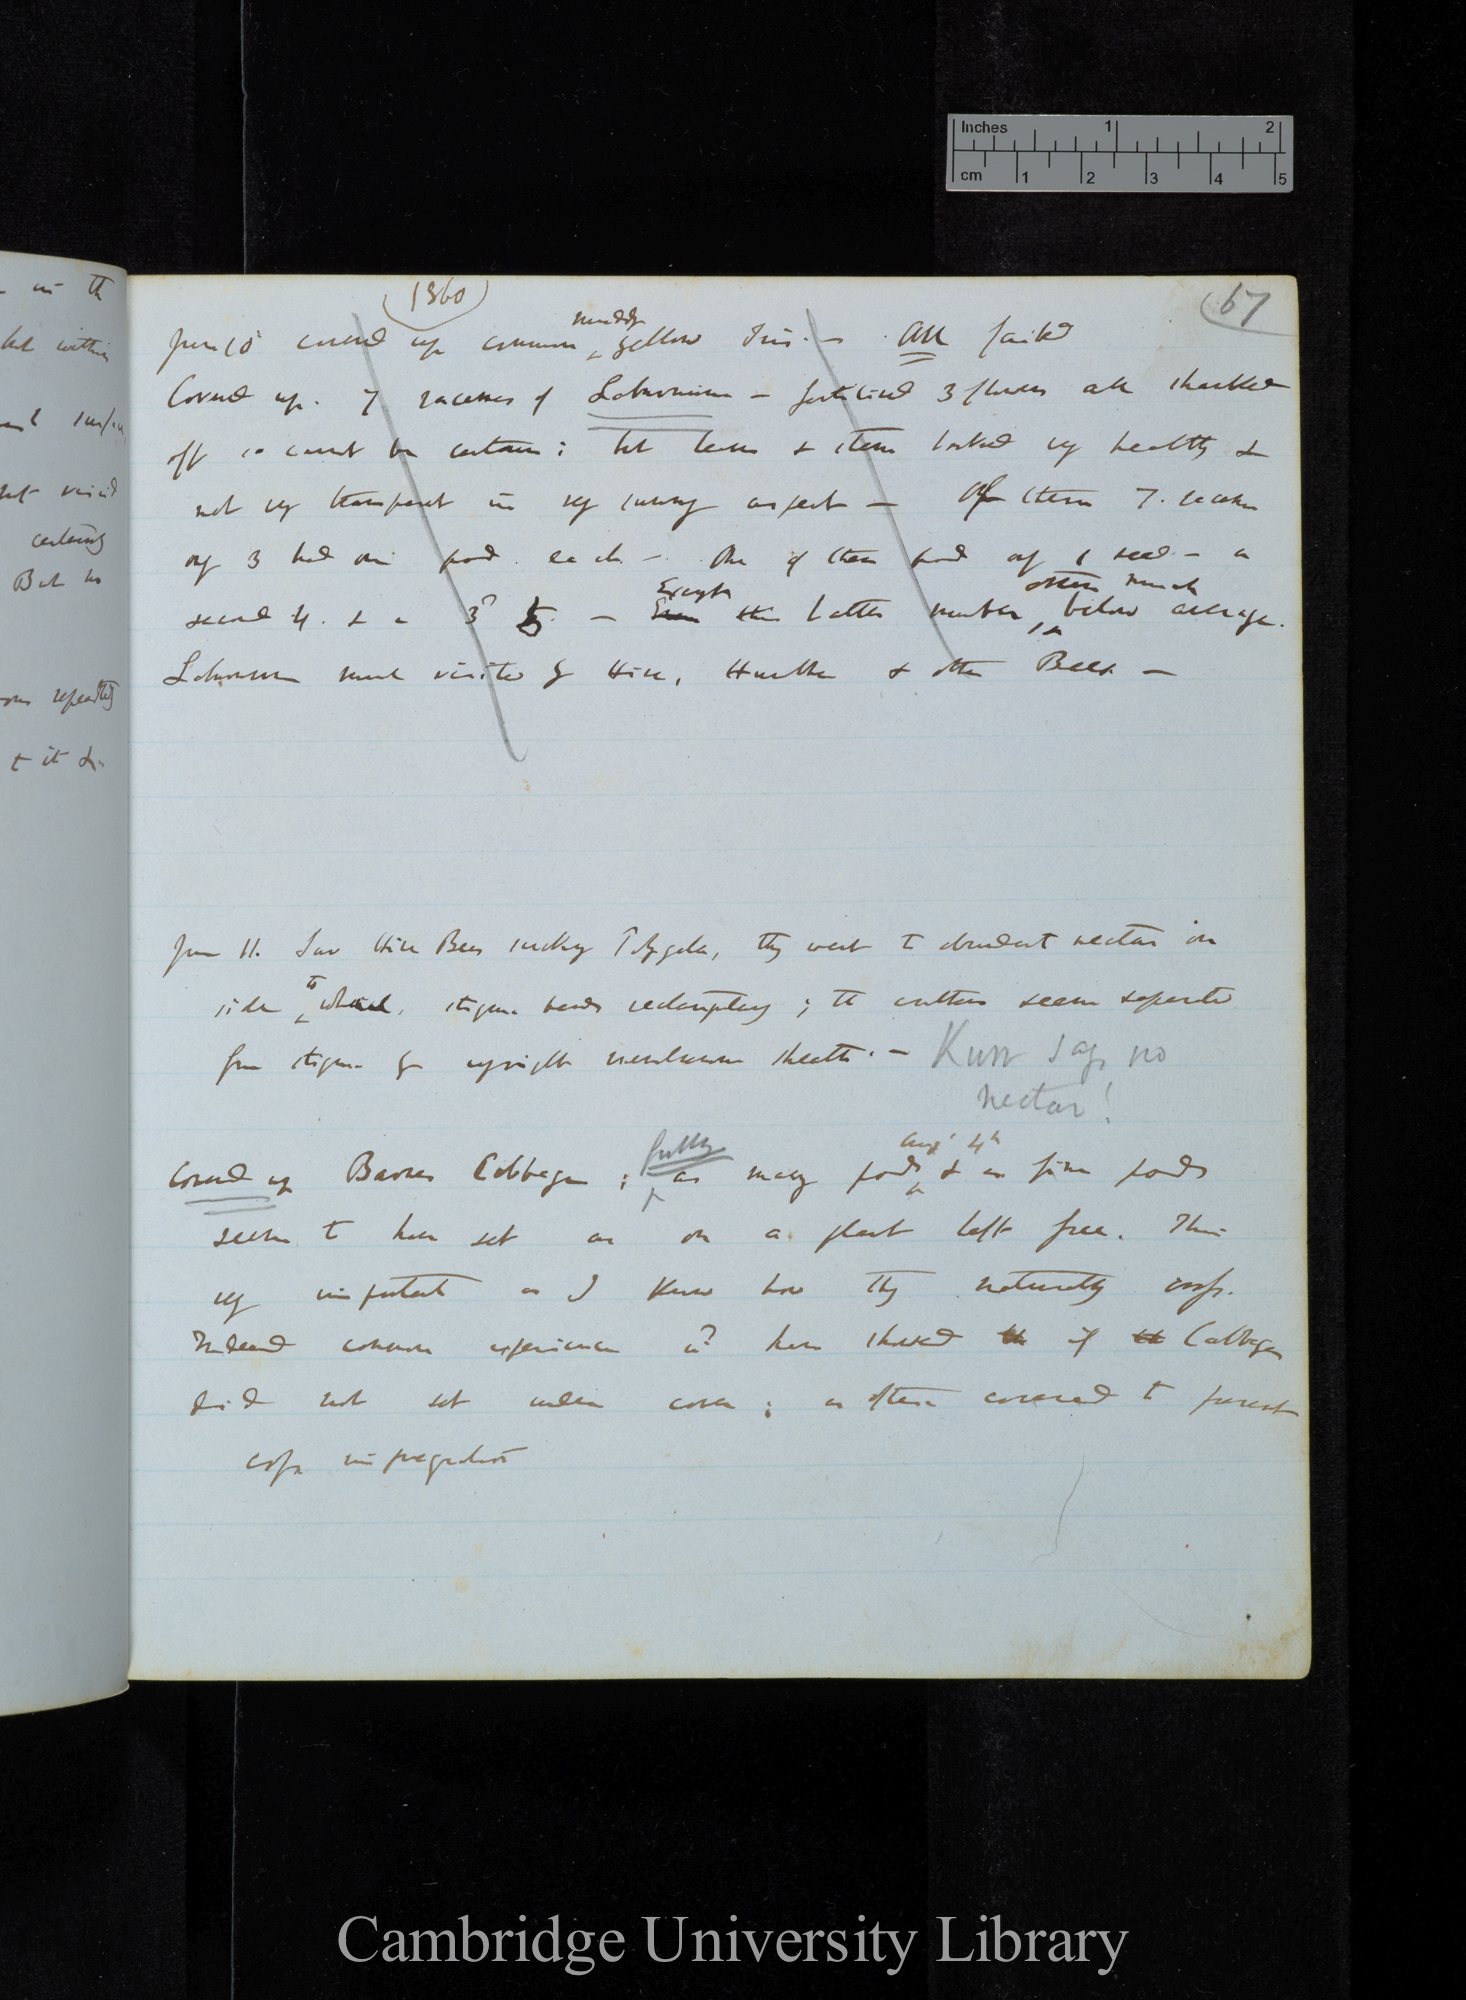 in the
but within
not visited
certainly
But no
repeatedly
to it &
(1860)
67
June 10 covered up common muddy yellow Iris. — All failed
Covered up. 7 racemes of Laburnum — fertilised 3 flowers all shanked
off so cannot be certain; but leaves & stem looked very healthy &
not very transparent in very sunny aspect — Of them 7. racemes
only 3 had one pod each — One of these pod only 1 seed — a
second 4. & a 3d 5. — Except Even this latter number, others much below average.
Laburnum much visited by Hive, Humble & other Bees. —
June 11. Saw Hive Bees sucking Polygala, they went to abundant nectar on
side to which, stigma bends ; the anthers seem separated
from stigma by upright membranous sheath. — Kurr says no
nectar!
Covered up Barnes Cabbage ; fully as many pods Aug. 4th & as fine pods
seem to have set as on a plant left free. This
very important as I know how they naturally cross.
Indeed common experience wd have showed th if th Cabbages
did not set under cover; as often covered to prevent
cross impregnation
Inches 1 2
cm 1 2 3 4 5
Cambridge University Library